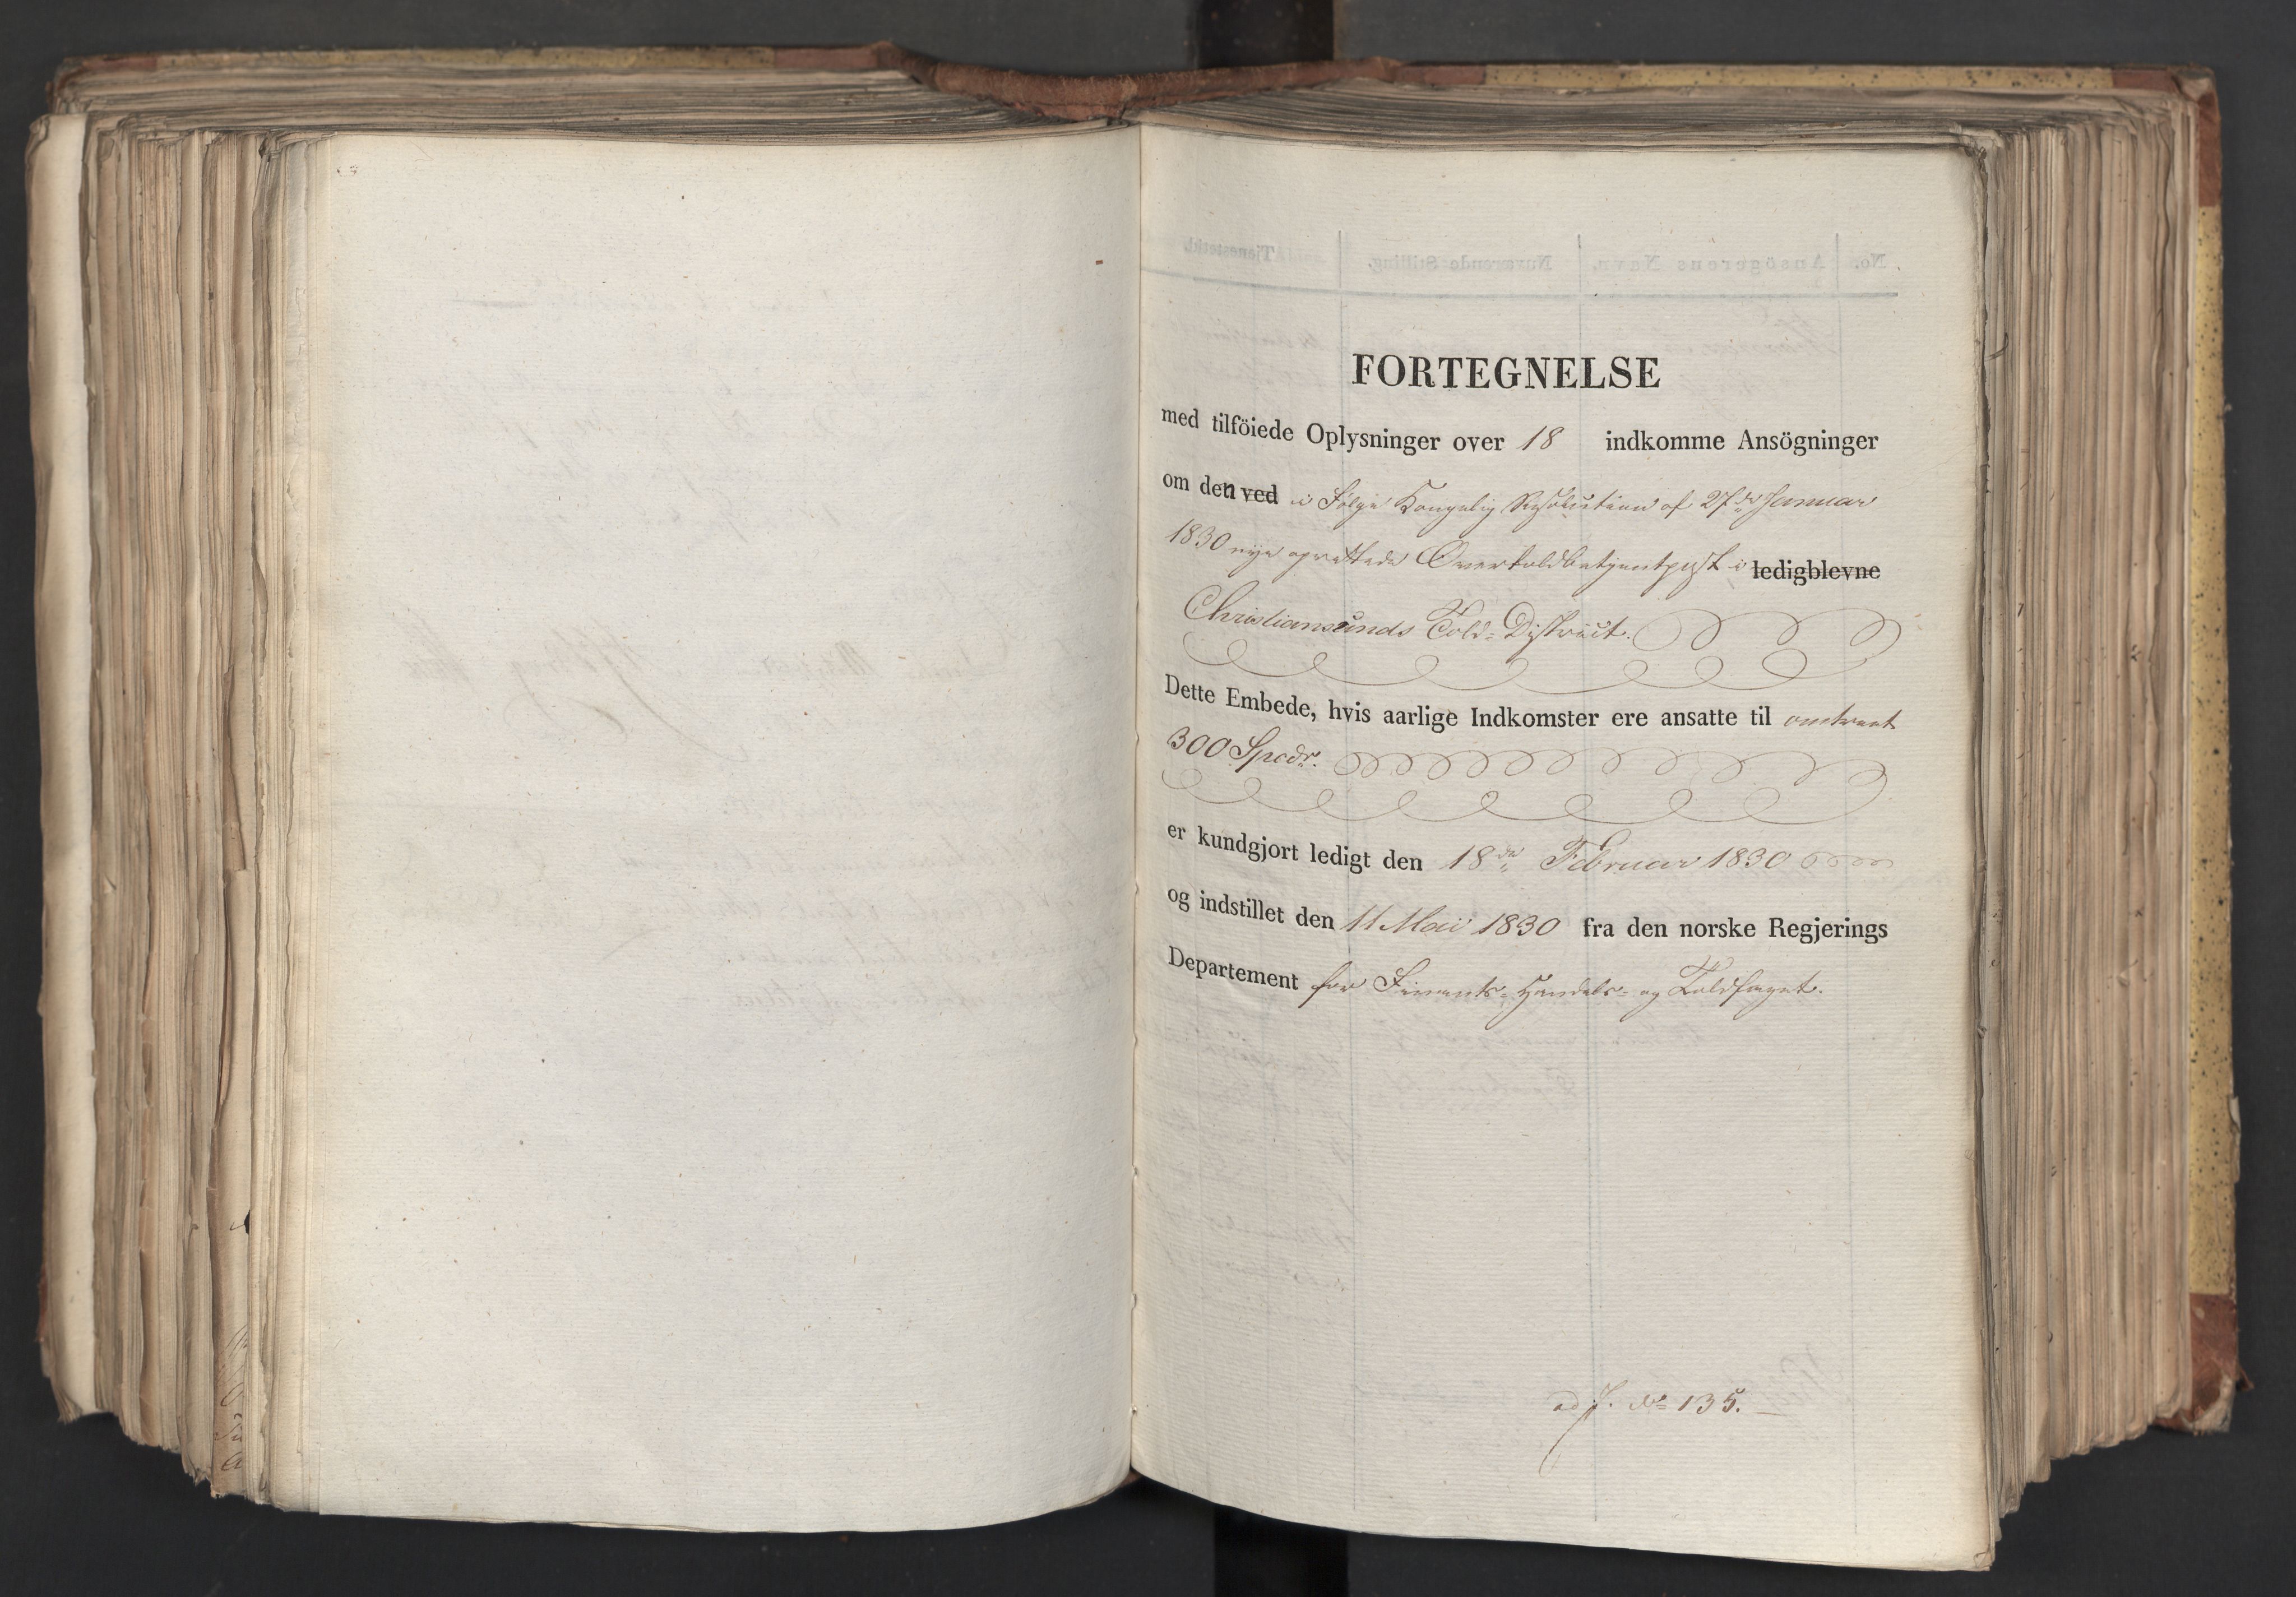 FORTEGNELSE
med tilföiede Oplysninger over 18 indkomme Ansögninger
om den ved i Følge Kongelig Resolution af 27de Januar
1830 nye oprettede Overtoldbetjentpost i ledigblevne
Christiansunds Told-District.
Dette Embede, hvis aarlige Indkomster ere ansatte til omtrent
300 Spcdr.
er kundgjort ledigt den 18de Februar 1830
og indstillet den 11 Mai 1830 fra den norske Regjerings
Departement for Finants- Handels- og Toldfaget.
ad J. No 135.